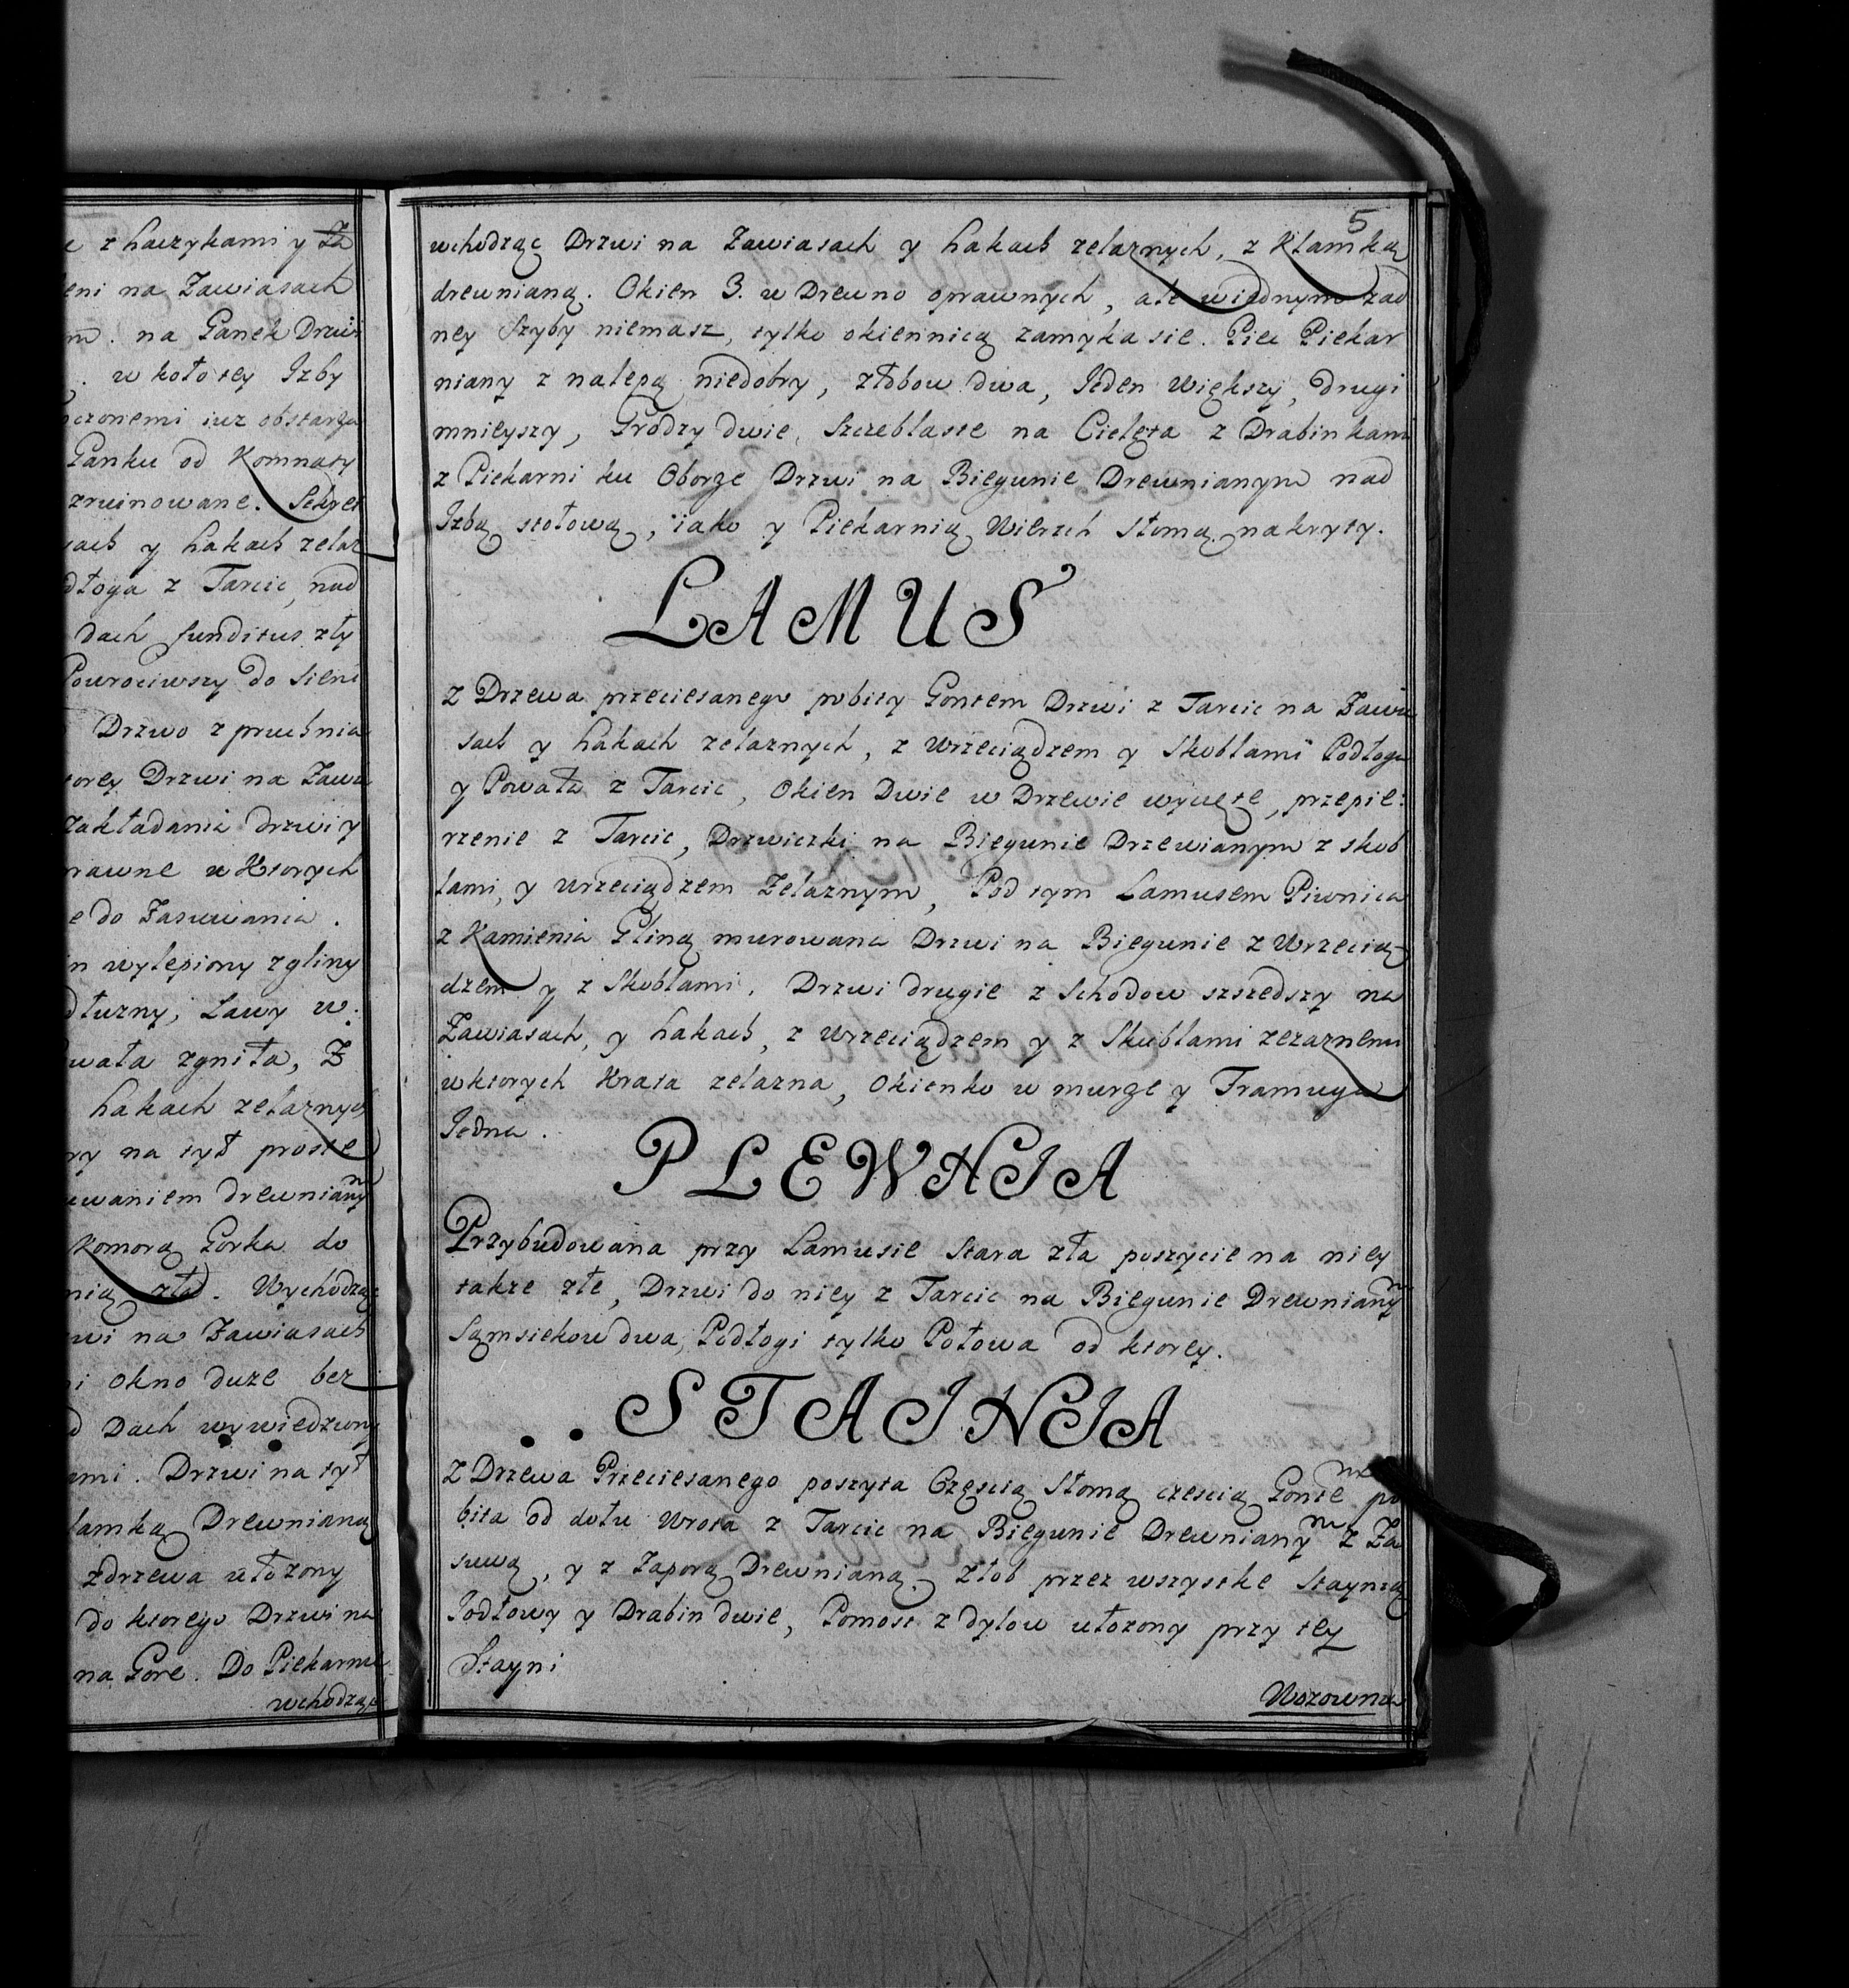 z haczykami y
na Zawiasach
na Ganek Drzwi
w koło tey Izby
iuz obstarza
Ganku od Komnaty
zruinowane. Sekret
y hakach zelaz
z Tarcic, nad
dach funditus zły
Powrociwszy do Sieni
Drzwo z pruchnia
Drzwi na Zawia
zakładania drzwi y
w Ktorych
do Zasuwania.
wylepiony z gliny
Ławy w.
zgniła, Z
hakach zelaznych
na tył proste
drewnianym
Komorą Gorka do
złą. Wychodząc
na Zawiasach
okno duze bez
Dach wywiedziony
Drzwi na tył
Drewnianą
zdrzewa ułozony
do ktorego Drzwi na
na Gore. Do Piekarni
wchodząc
5
wchodząc Drzwi na Zawiasach y hakach zelaznych, z Klamką
drewnianą. Okien 3. w Drewno oprawnych, ale wiednym zad
ney Szyby niemasz, tylko okiennicą zamyka sie. Piec Piekar
niany z nalepą niedobry, złobow dwa, Jeden Większy, drugi
mnieyszy, Grodzy dwie, Szczeblaste na Cielęta z Drabinkami
z Piekarni ku Oborze Drzwi na Biegunie Drewnianym nad
Izbą stołową, iako y Piekarnią Wierzch słomą nakryty.
LAMUS
Z Drzewa przeciesanego pobity Gontem Drzwi z Tarcic na Zawia
sach y hakach zelaznych, z wrzeciądzem y Skoblami Podłoga
y Powała z Tarcic, Okien Dwie w Drzewie wycięte, przepie:
rzenie z Tarcic, Drzwiczki na Biegunie Drzewianym z skob
lami, y wrzeciądzem Zelaznym, Pod tym Lamusem Piwnica
z Kamienia Gliną murowana Drzwi na Biegunie z Wrzecią
dzem y z Skoblami. Drzwi drugie z Schodow szszedszy na
Zawiasach, y hakach, z Wrzeciądzem y z Skublami zezaznemi
wktorych Krata zelazna, Okienko w murze y Framuga
Jedna.
PLEWNIA
Przybudowana przy Lamusie Stara zła poszycie na niey
takze złe, Drzwi do niey z Tarcic na Biegunie Drewnianym
Sąmsiekow dwa, Podłogi tylko Połowa od ktorey.
.. STAINIA
Z Drzewa Przeciesanego poszyta Częscią Słomą czescią Gontem po
bita od dołu Wrota z Tarcic na Biegunie Drewnianym z Za
suwą, y z Zaporą Drewnianą. Złob przez wszystke Staynią
Jodłowy y Drabin dwie, Pomost z dylow ułozony przy tey
Stayni
Wozownia